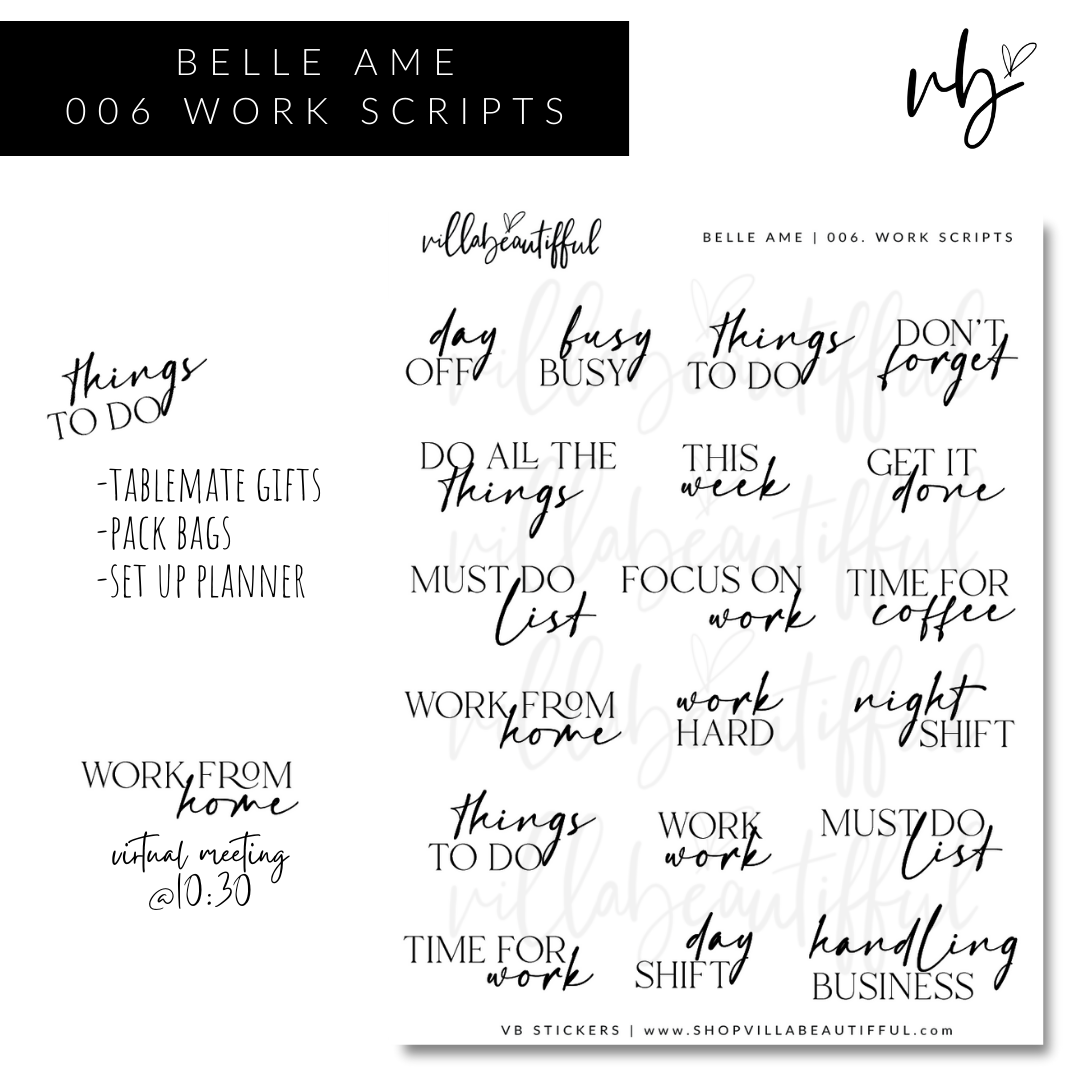 BELLE AME
006 WORK SCRIPTS
vb
things
TO DO
-TABLEMATE GIFTS
-PACK BAGS
-SET UP PLANNER
WORK FROM
home
virtual meeting
@10:30
villabeautifful
BELLE AME | 006. WORK SCRIPTS
day
OFF
busy
BUSY
things
TO DO
DON'T
forget
DO ALL THE
things
THIS
week
GET IT
done
MUST DO
list
FOCUS ON
work
TIME FOR
coffee
WORK FROM
home
work
HARD
night
SHIFT
things
TO DO
WORK
work
MUST DO
list
TIME FOR
work
day
SHIFT
handling
BUSINESS
villabeautifful
villabeautifful
villabeautifful
villabeautifful
VB STICKERS | www.SHOPVILLABEAUTIFFUL.com